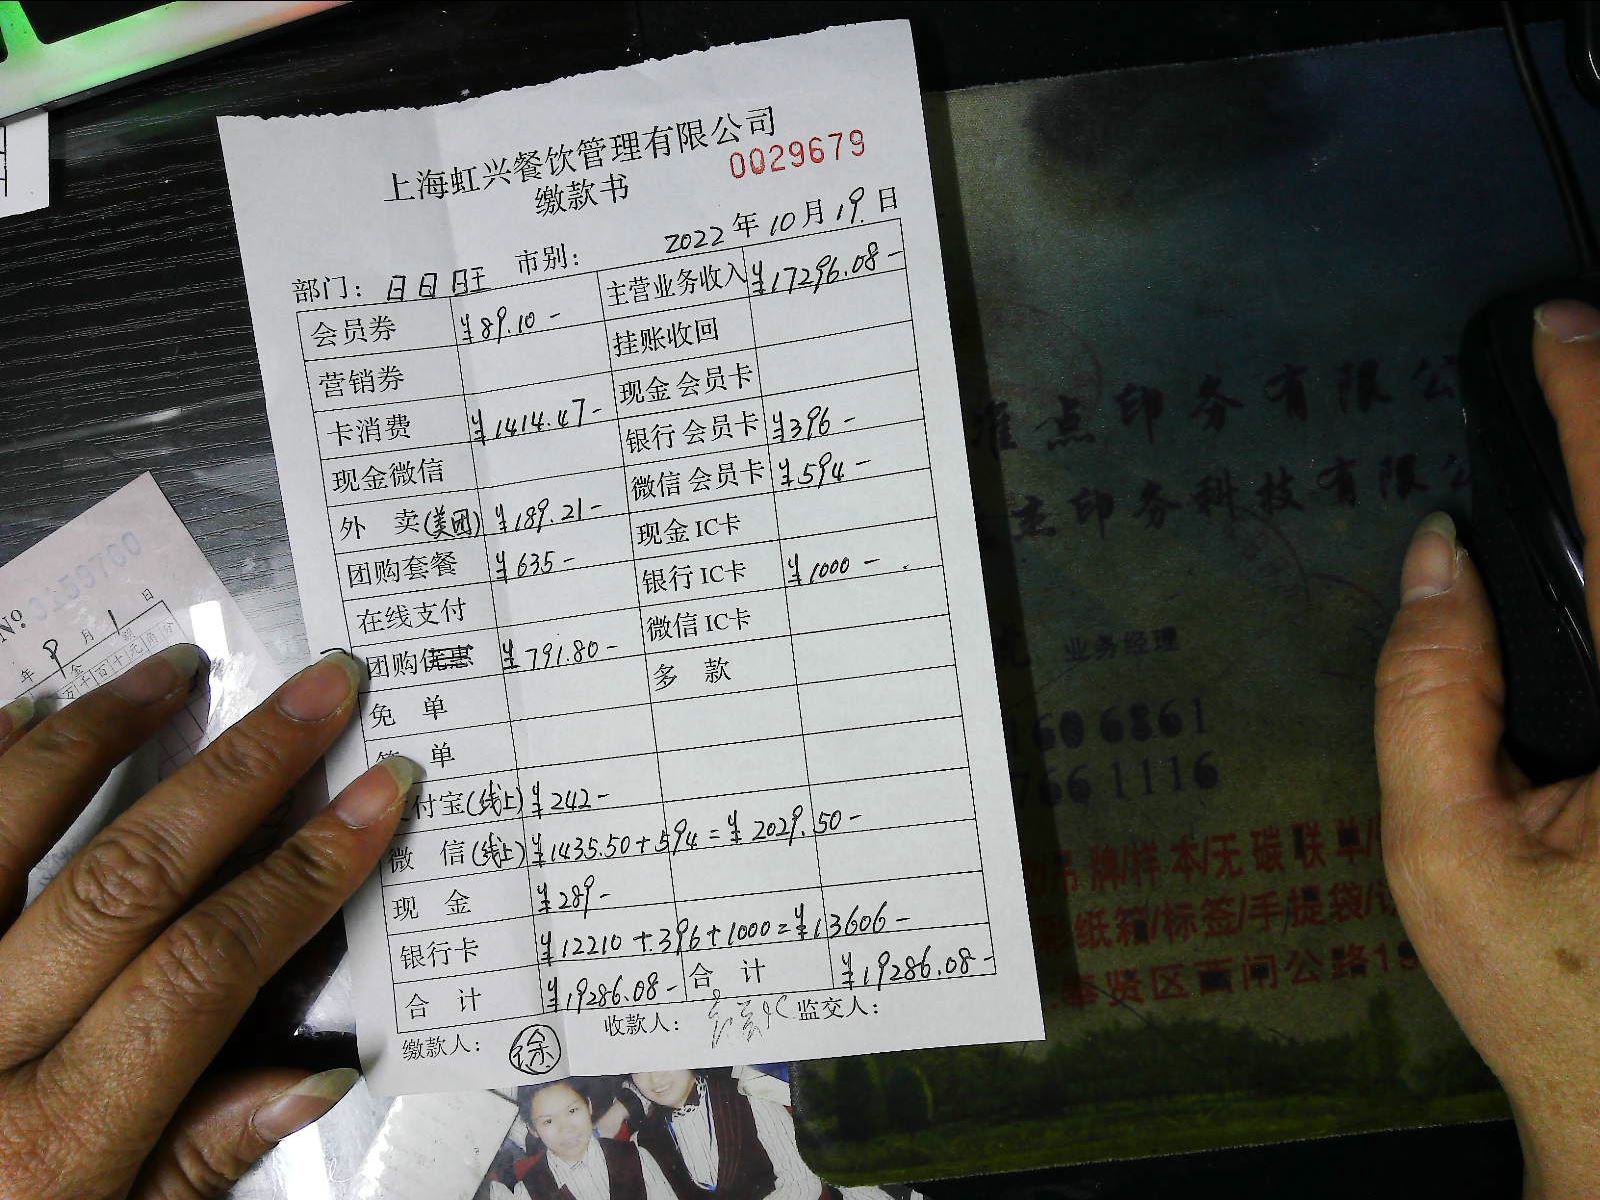 上海虹兴餐饮管理有限公司
0029679
缴款书
2022年10月19日
部门：日日旺 市别：
会员券 ¥89.10- 主营业务收入 ¥17296.08-
营销券 挂账收回
卡消费 ¥1414.47- 现金会员卡
现金微信 银行会员卡 ¥396-
外 卖(美团) ¥189.21- 微信会员卡 ¥594-
团购套餐 ¥635- 现金IC卡
在线支付 银行IC卡 ¥1000-
团购优惠 ¥791.80- 微信IC卡
免 单 多 款
单
付宝(线上) ¥242-
微 信(线上) ¥1435.50+594=¥2029.50-
现 金 ¥289-
银行卡 ¥12210+396+1000=¥13606-
合 计 ¥19286.08- 合 计 ¥19286.08-
缴款人： 徐 收款人： 监交人：
No. 0150700
年 9月1日
金 额
万千百十元角分
准点印务有限公
杰印务科技有限公
业务经理
1606861
7661116
吊牌/样本/无碳联单/
纸箱/标签/手提袋/
奉贤区西闸公路